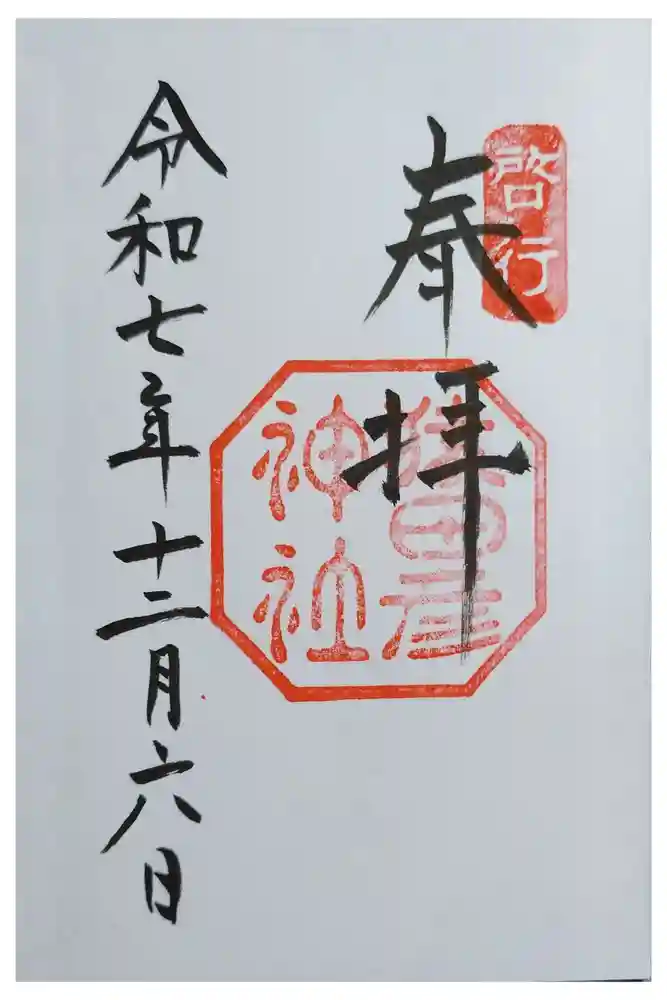 啓行
奉拝
猿田彦
神社
令和七年十二月六日